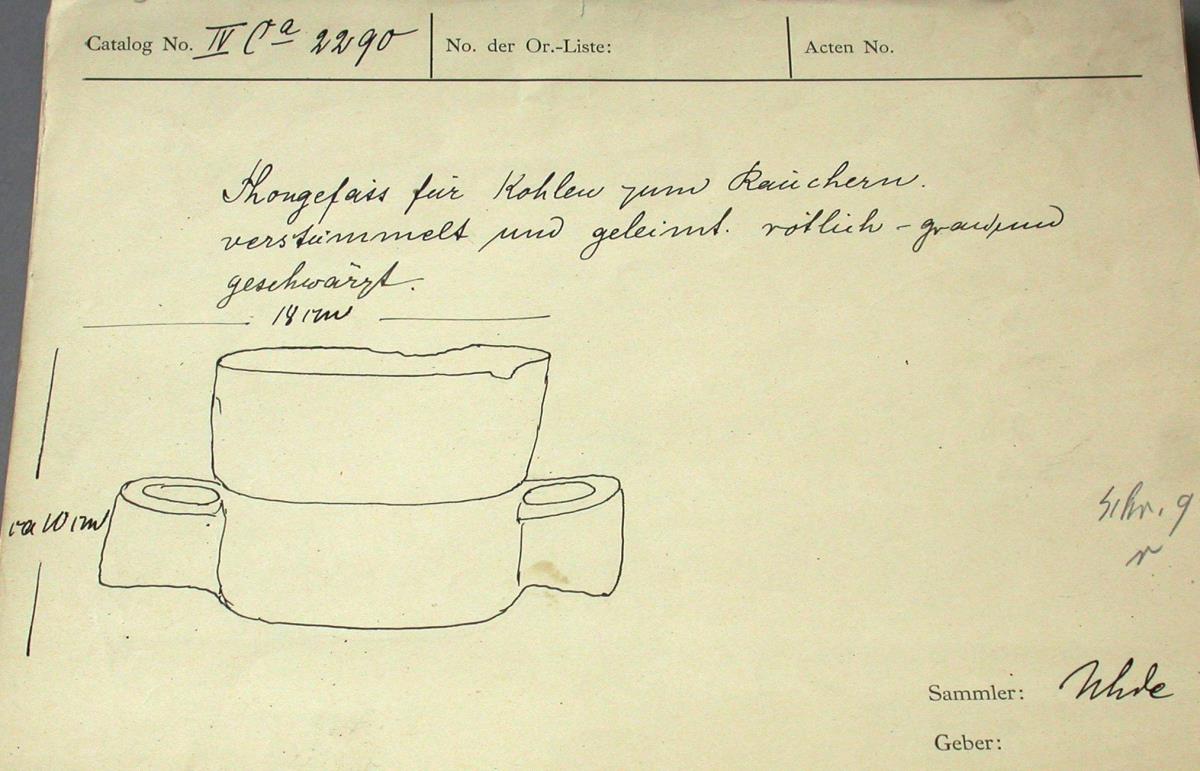 Catalog No. IV Ca 2290 No. der Or.-Liste: Acten No.
Thongefäss für Kohlen zum Räuchern.
verstümmelt und geleimt. rötlich - grau, und
geschwärzt.
18 cm
ca 10 cm
Schr. 9
r
Sammler: Uhde
Geber: